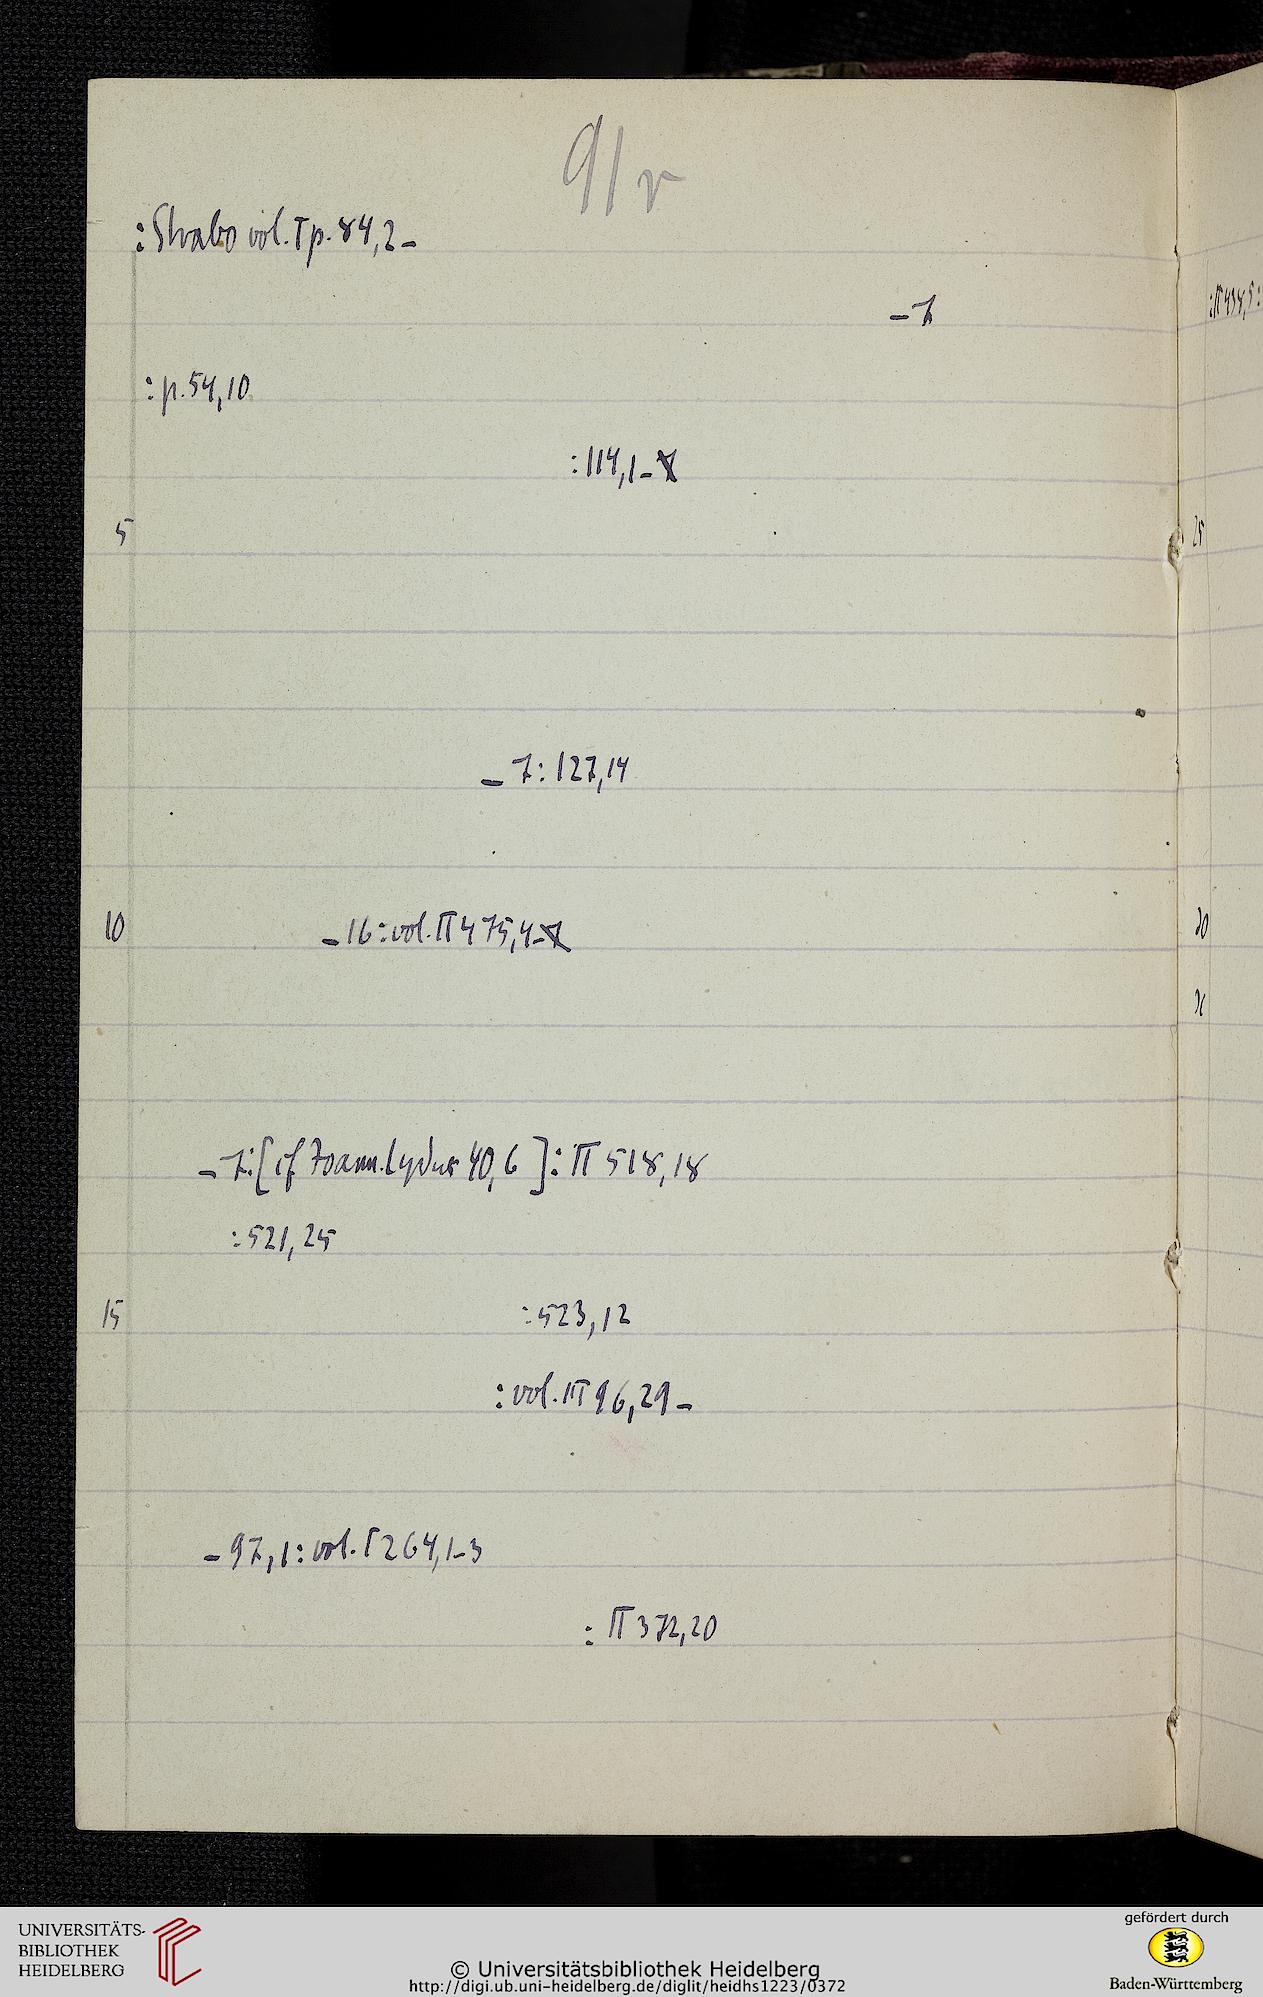 91r
: Strabo vol. I p. 84,2 –
– 7
: p. 54,10
: 114,1 –
5
– 7 : 127,14
10 – 16 : vol. II 475,4 –
– 7 : [cf Joann. Lydus 40,6] : II 518,18
: 521,25
15 : 523,12
: vol. III 96,29 –
– 97,1 : vol. I 264,1–3
: II 372,20
: II 434,5 :
25
30
UNIVERSITÄTS-
BIBLIOTHEK
HEIDELBERG
© Universitätsbibliothek Heidelberg
http://digi.ub.uni-heidelberg.de/diglit/heidhs1223/0372
gefördert durch
Baden-Württemberg